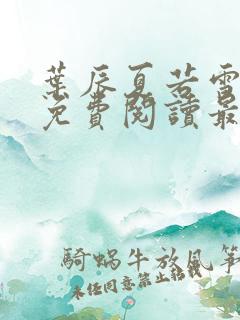 葉辰夏若雪
免費閱讀最
騎蝸牛放風箏
未經同意禁止轉載